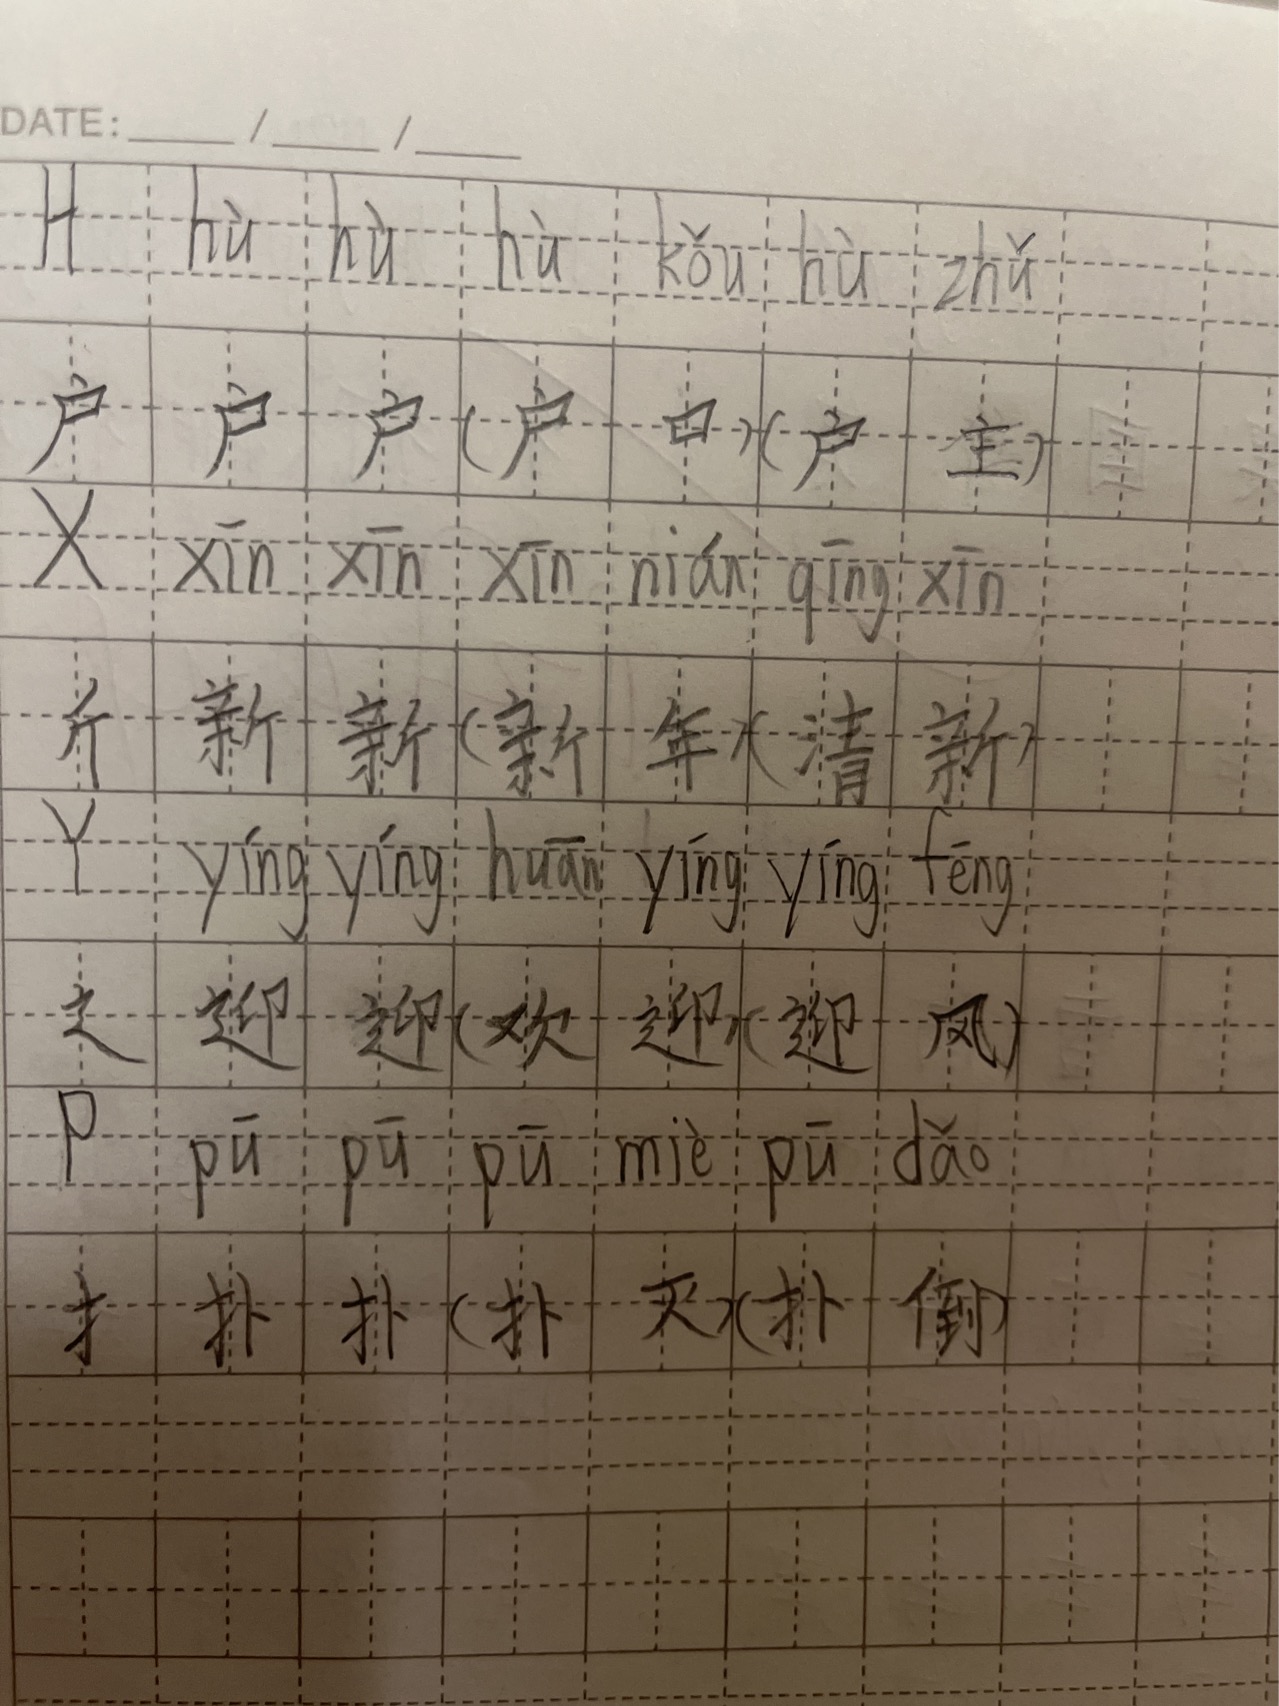 DATE: ____ / ____ / ____
H hù hù hù kǒu hù zhǔ
户 户 户 (户 口) (户 主)
X xīn xīn xīn nián qīng xīn
斤 新 新 (新 年) (清 新)
Y yíng yíng huān yíng yíng fēng
辶 迎 迎 (欢 迎) (迎 风)
P pū pū pū miè pū dǎo
扌 扑 扑 (扑 灭) (扑 倒)